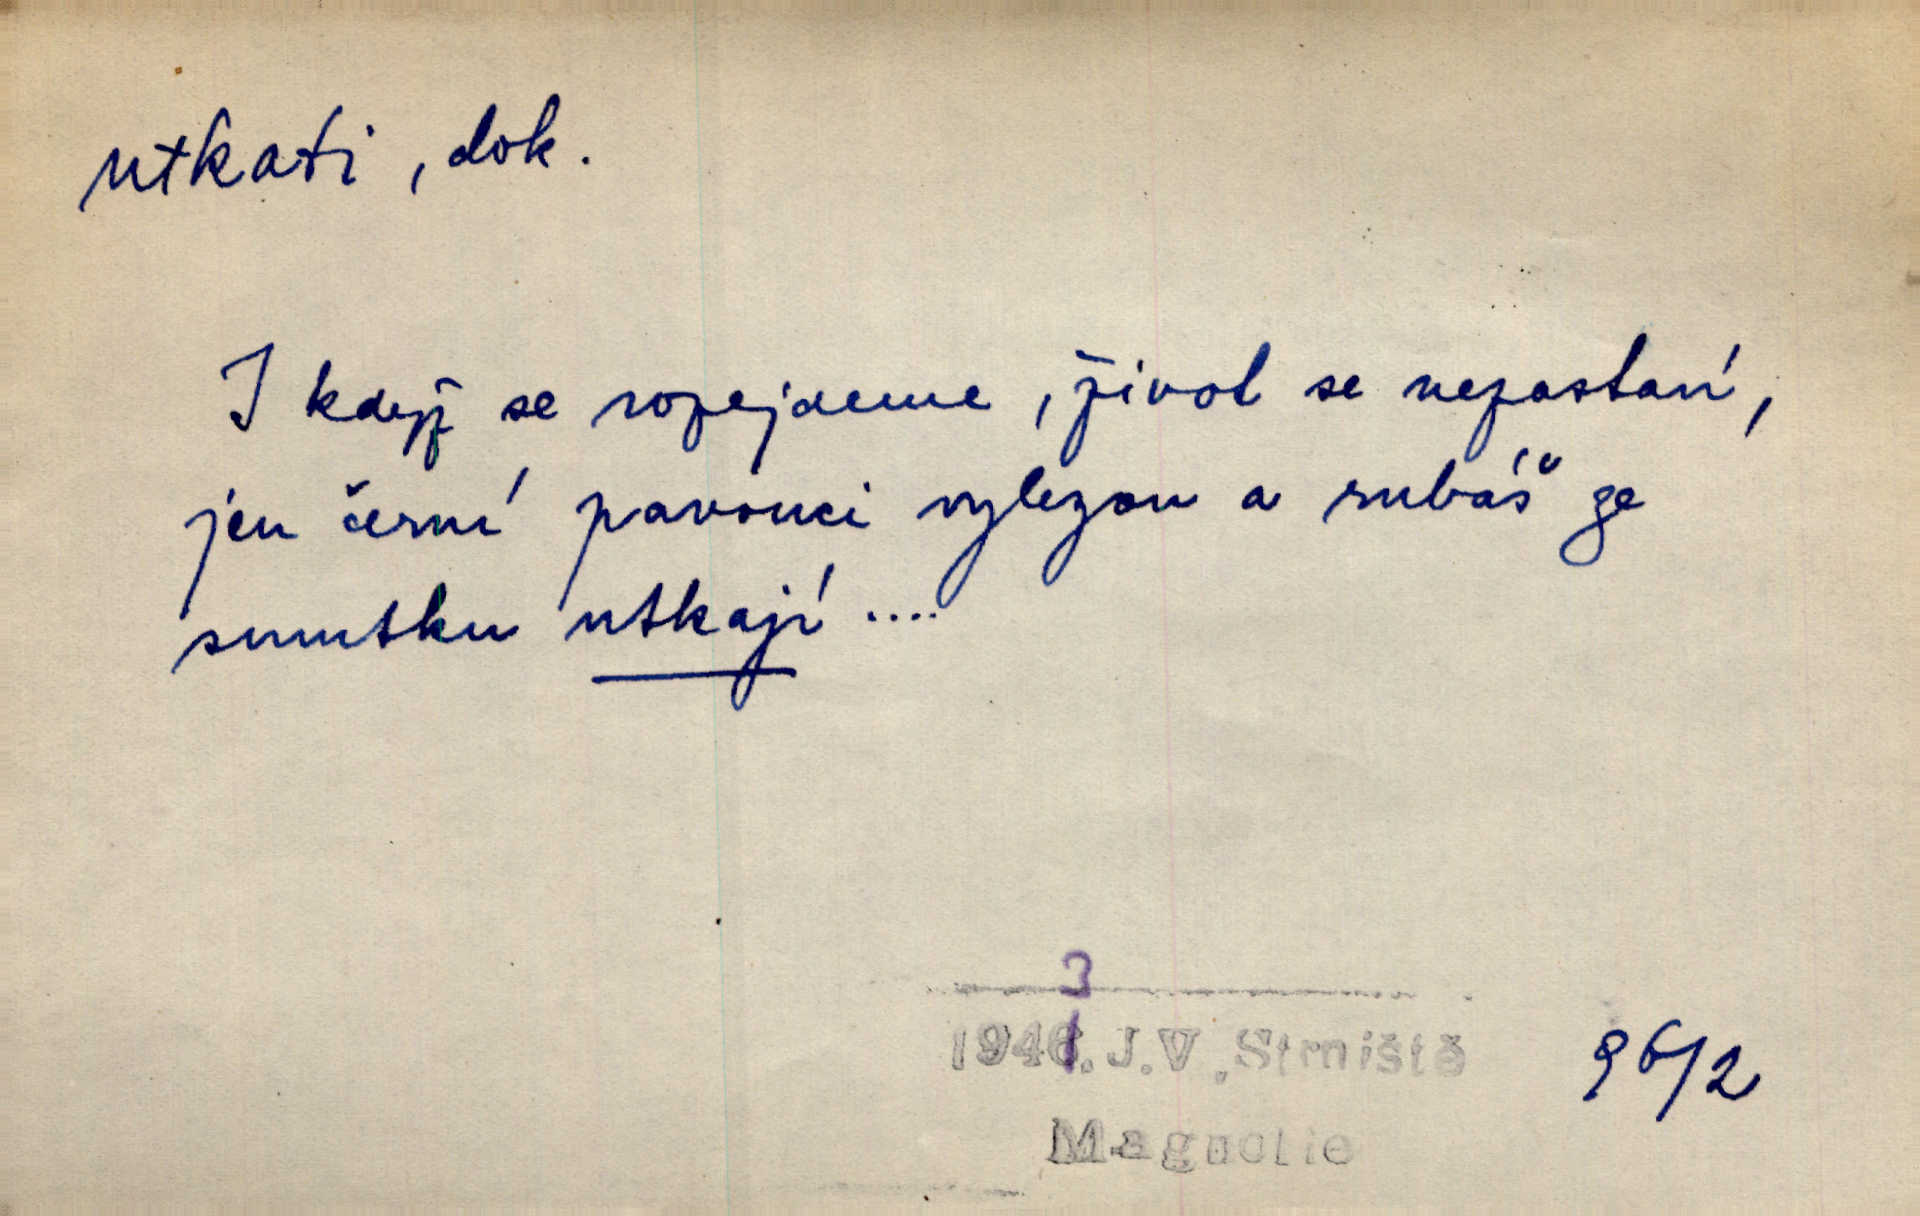 utkati, dok.
I když se rozejdeme, život se nezastaví,
jen černí pavouci vylezou a rubáš ze
smutku utkají ....
3
1946. J.V. Strniště
96/2
Magnolie